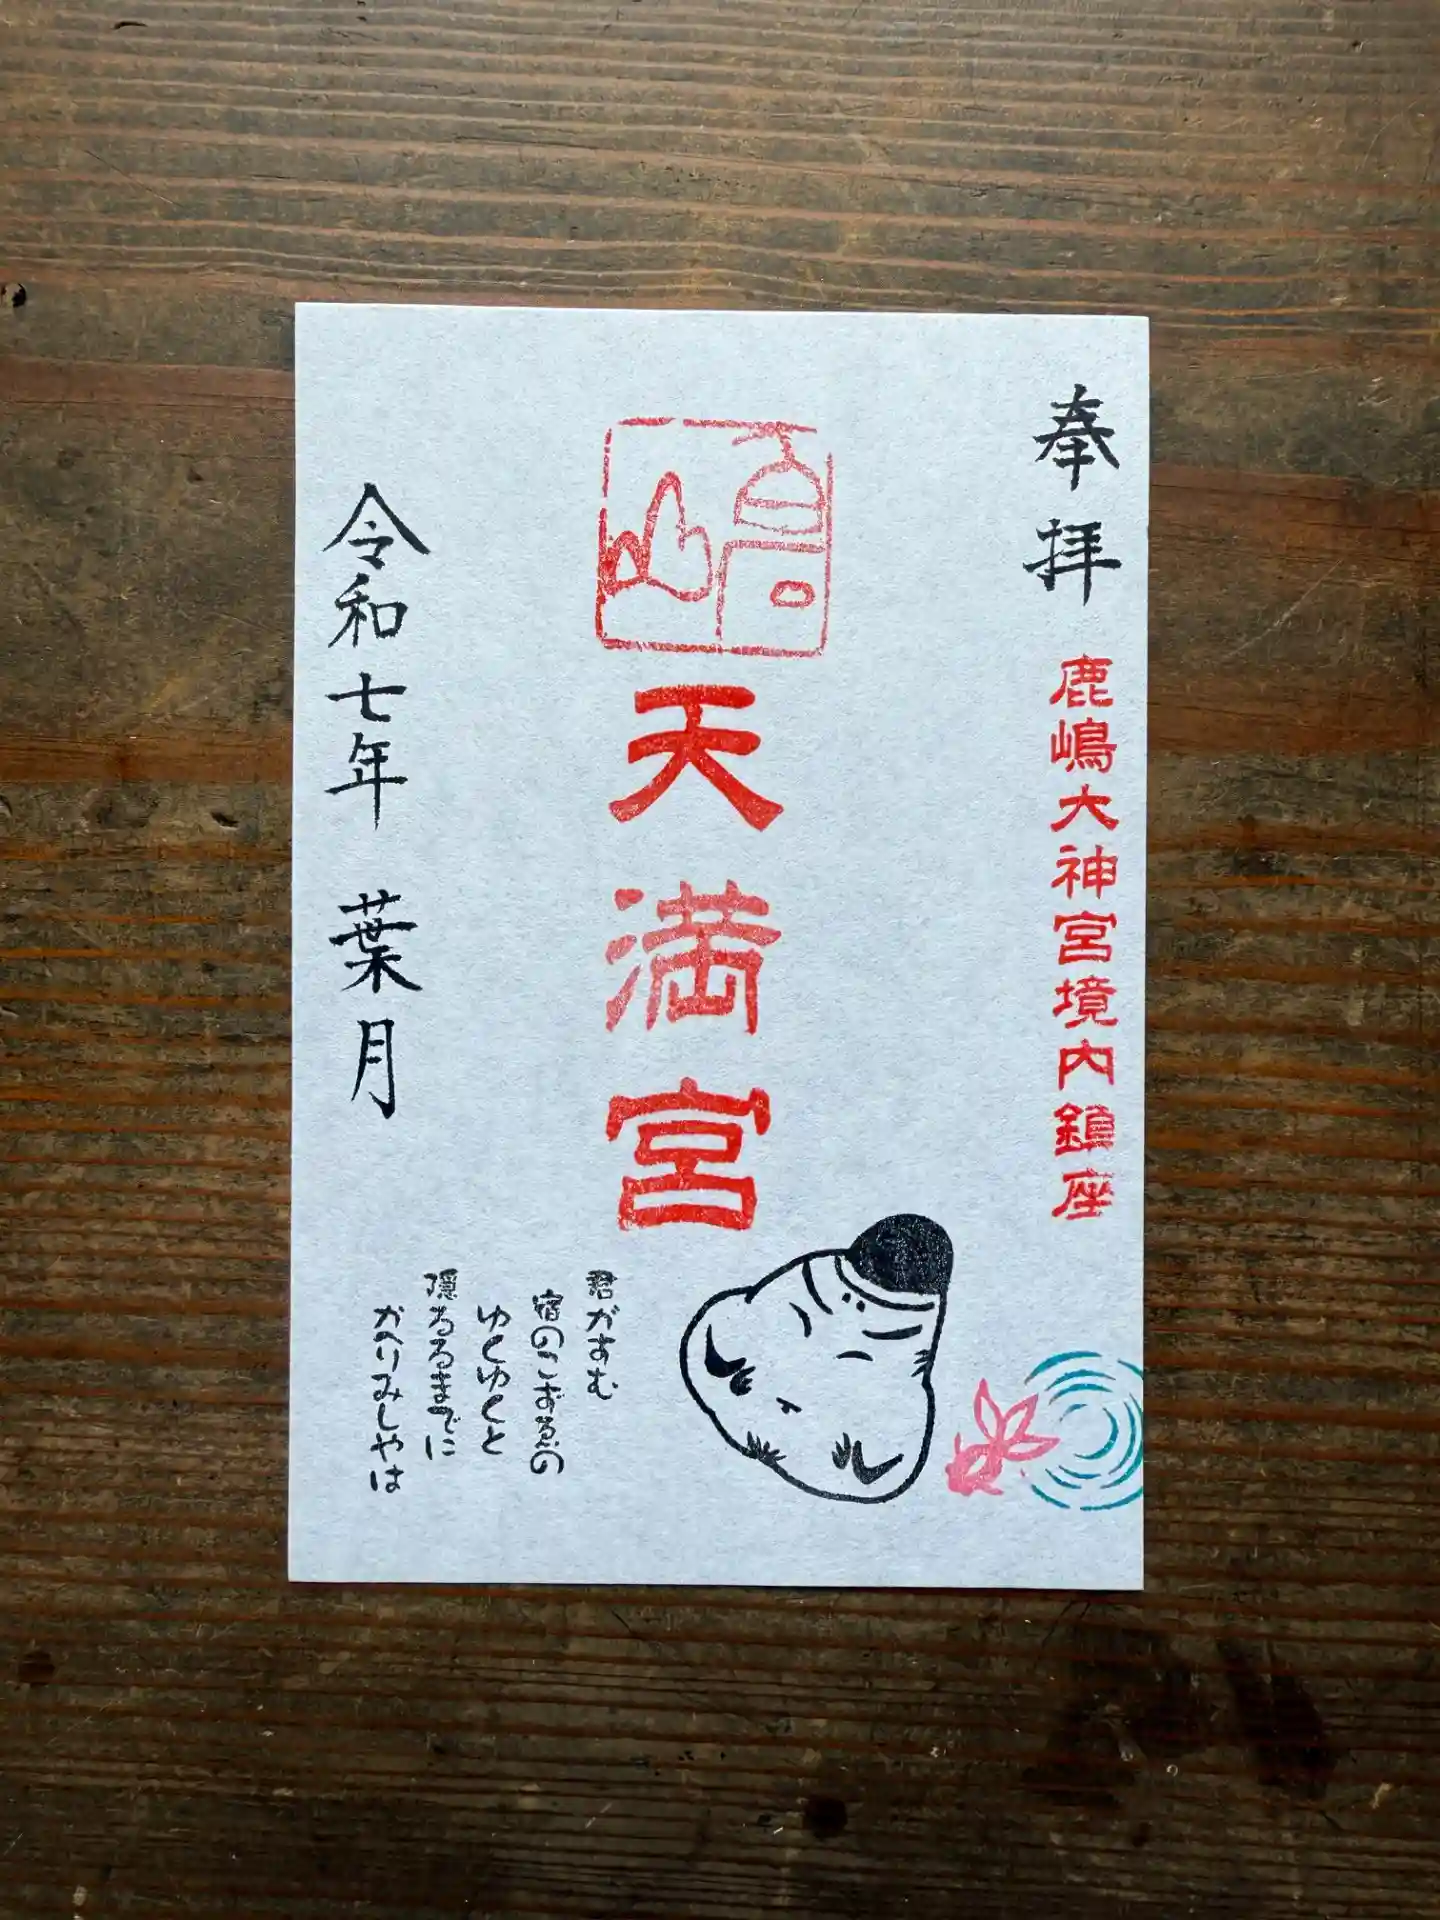 奉拝
鹿嶋大神宮境内鎮座
天満宮
君がすむ
宿のこずゑの
ゆくゆくと
隠るるまでに
かへりみしやは
令和七年 葉月